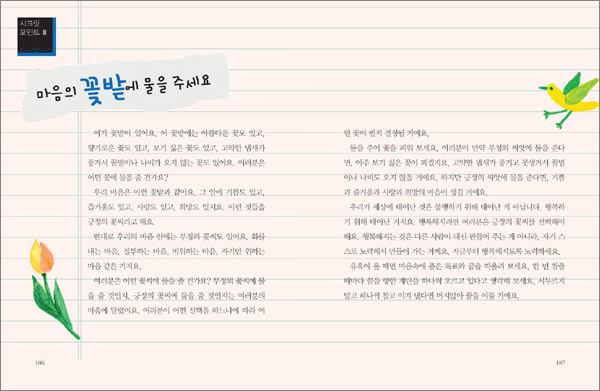 시크릿
포인트 8
마음의 꽃밭에 물을 주세요
여기 꽃밭이 있어요. 이 꽃밭에는 아름다운 꽃도 있고,
향기로운 꽃도 있고, 보기 싫은 꽃도 있고, 고약한 냄새가
풍겨서 꿀벌이나 나비가 오지 않는 꽃도 있어요. 여러분은
어떤 꽃에 물을 줄 건가요?
우리 마음은 이런 꽃밭과 같아요. 그 안에 기쁨도 있고,
즐거움도 있고, 사랑도 있고, 희망도 있지요. 이런 것들을
긍정의 꽃씨라고 해요.
반대로 우리의 마음 안에는 부정의 꽃씨도 있어요. 화를
내는 마음, 질투하는 마음, 미워하는 마음, 자기만 위하는
마음 같은 거지요.
여러분은 어떤 꽃씨에 물을 줄 건가요? 부정의 꽃씨에 물
을 줄 것인지, 긍정의 꽃씨에 물을 줄 것인지는 여러분의
마음에 달렸어요. 여러분이 어떤 선택을 하느냐에 따라 어
186
떤 꽃이 필지 결정될 거예요.
물을 주어 꽃을 피워 보세요. 여러분이 만약 부정의 씨앗에 물을 준다
면, 아주 보기 싫은 꽃이 피겠지요. 고약한 냄새가 풍기고 못생겨서 꿀벌
이나 나비도 오지 않을 거예요. 하지만 긍정의 씨앗에 물을 준다면, 기쁨
과 즐거움과 사랑과 희망의 마음이 생길 거예요.
우리가 세상에 태어난 것은 불행하기 위해 태어난 게 아닙니다. 행복하
기 위해 태어난 거지요. 행복해지려면 여러분은 긍정의 꽃씨를 선택해야
해요. 행복해지는 것은 다른 사람이 대신 만들어 주는 게 아니라, 자기 스
스로 노력해서 만들어 가는 거예요. 지금부터 행복해지도록 노력하세요.
유혹이 올 때면 마음속에 품은 목표와 꿈을 떠올려 보세요. 한 번 참을
때마다 꿈을 향한 계단을 하나씩 오르고 있다고 생각해 보세요. 서두르지
말고 하나씩 참고 이겨 낸다면 머지않아 꿈을 이룰 거예요.
187